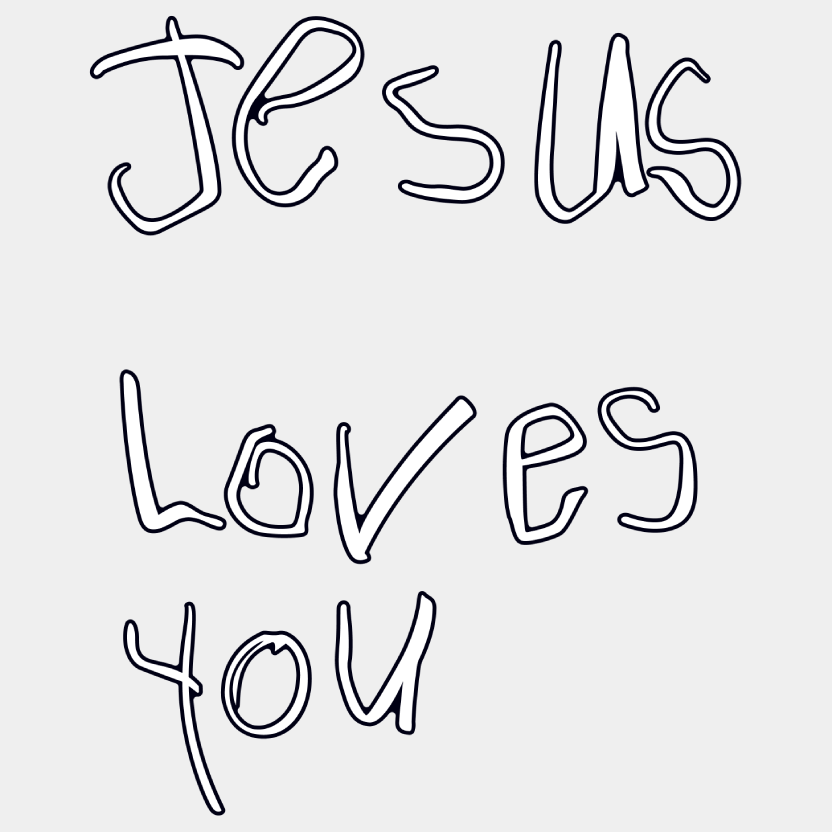 Jesus
Loves
you